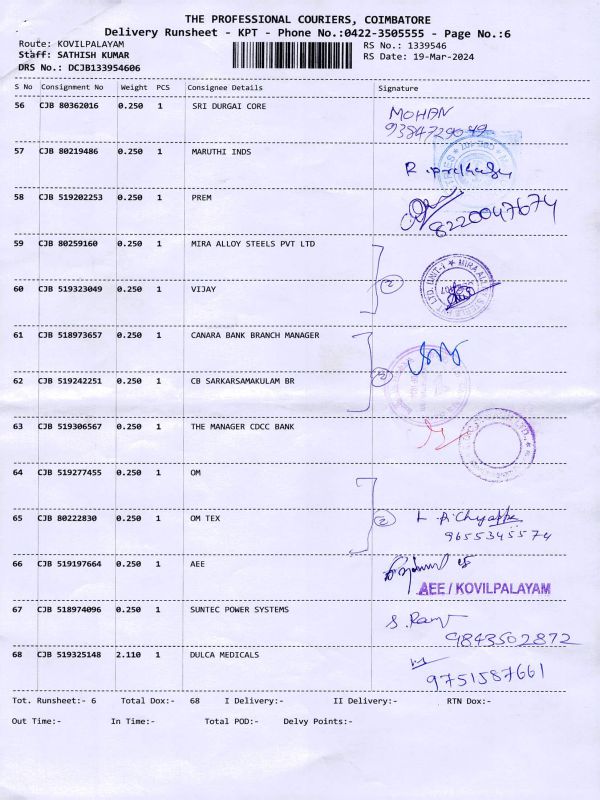 THE PROFESSIONAL COURIERS, COIMBATORE
Delivery Runsheet - KPT - Phone No.:0422-3505555 - Page No.:6
Route: KOVILPALAYAM RS No.: 1339546
Staff: SATHISH KUMAR RS Date: 19-Mar-2024
DRS No.: DCJB133954606
S No Consignment No Weight PCS Consignee Details Signature
56 CJB 80362016 0.250 1 SRI DURGAI CORE MOHAN
9384729049
57 CJB 80219486 0.250 1 MARUTHI INDS
58 CJB 519202253 0.250 1 PREM 8220047674
59 CJB 80259160 0.250 1 MIRA ALLOY STEELS PVT LTD
60 CJB 519323049 0.250 1 VIJAY 2
61 CJB 518973657 0.250 1 CANARA BANK BRANCH MANAGER
62 CJB 519242251 0.250 1 CB SARKARSAMAKULAM BR
63 CJB 519306567 0.250 1 THE MANAGER CDCC BANK
64 CJB 519277455 0.250 1 OM
65 CJB 80222830 0.250 1 OM TEX 2
9655345574
66 CJB 519197664 0.250 1 AEE
AEE / KOVILPALAYAM
67 CJB 518974096 0.250 1 SUNTEC POWER SYSTEMS S. Ram
9843502872
68 CJB 519325148 2.110 1 DULCA MEDICALS
9751587661
Tot. Runsheet:- 6 Total Dox:- 68 I Delivery:- II Delivery:- RTN Dox:-
Out Time:- In Time:- Total POD:- Delvy Points:-